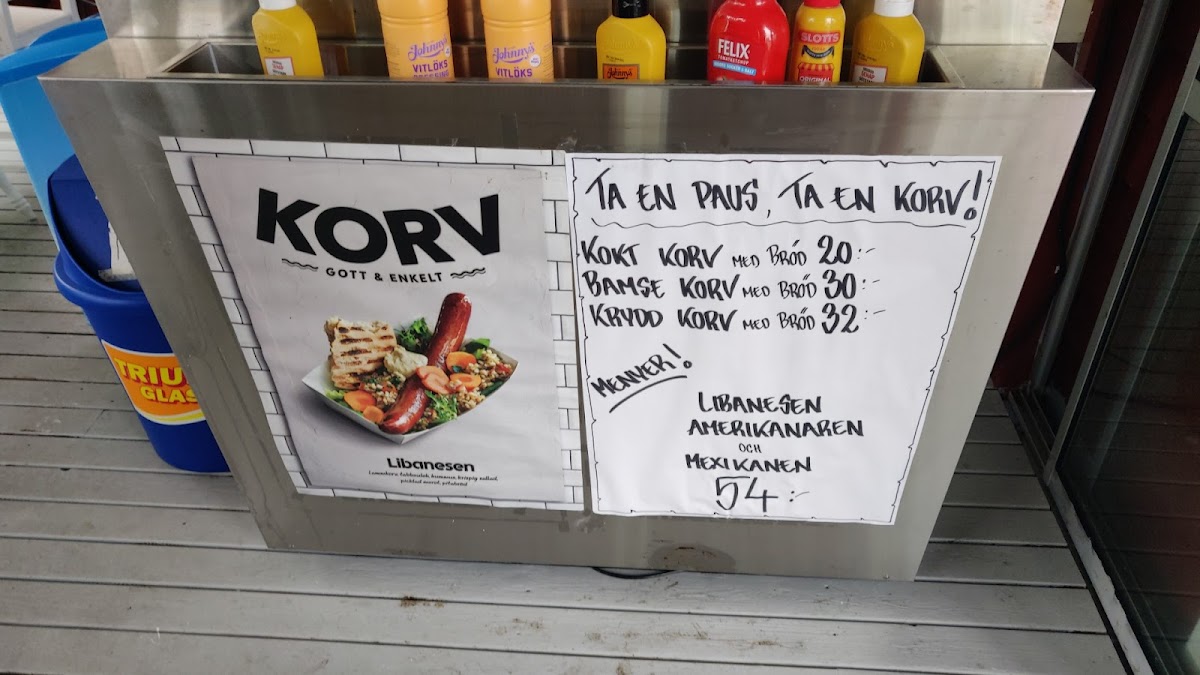 Johnny's
VITLÖKS
DRESSING
Johnny's
VITLÖKS
Johnny's
FELIX
TOMATKETCHUP
SLOTTS
ORIGINAL
KORV
GOTT & ENKELT
Libanesen
Lammkorv, tabbouleh, hummus, krispig sallad,
picklad morot, pitabröd
TA EN PAUS, TA EN KORV!
KOKT KORV MED BRÖD 20:-
BAMSE KORV MED BRÖD 30:-
KRYDD KORV MED BRÖD 32:-
MENYER!
LIBANESEN
AMERIKANAREN
OCH
MEXIKANEN
54:-
TRIU
GLAS